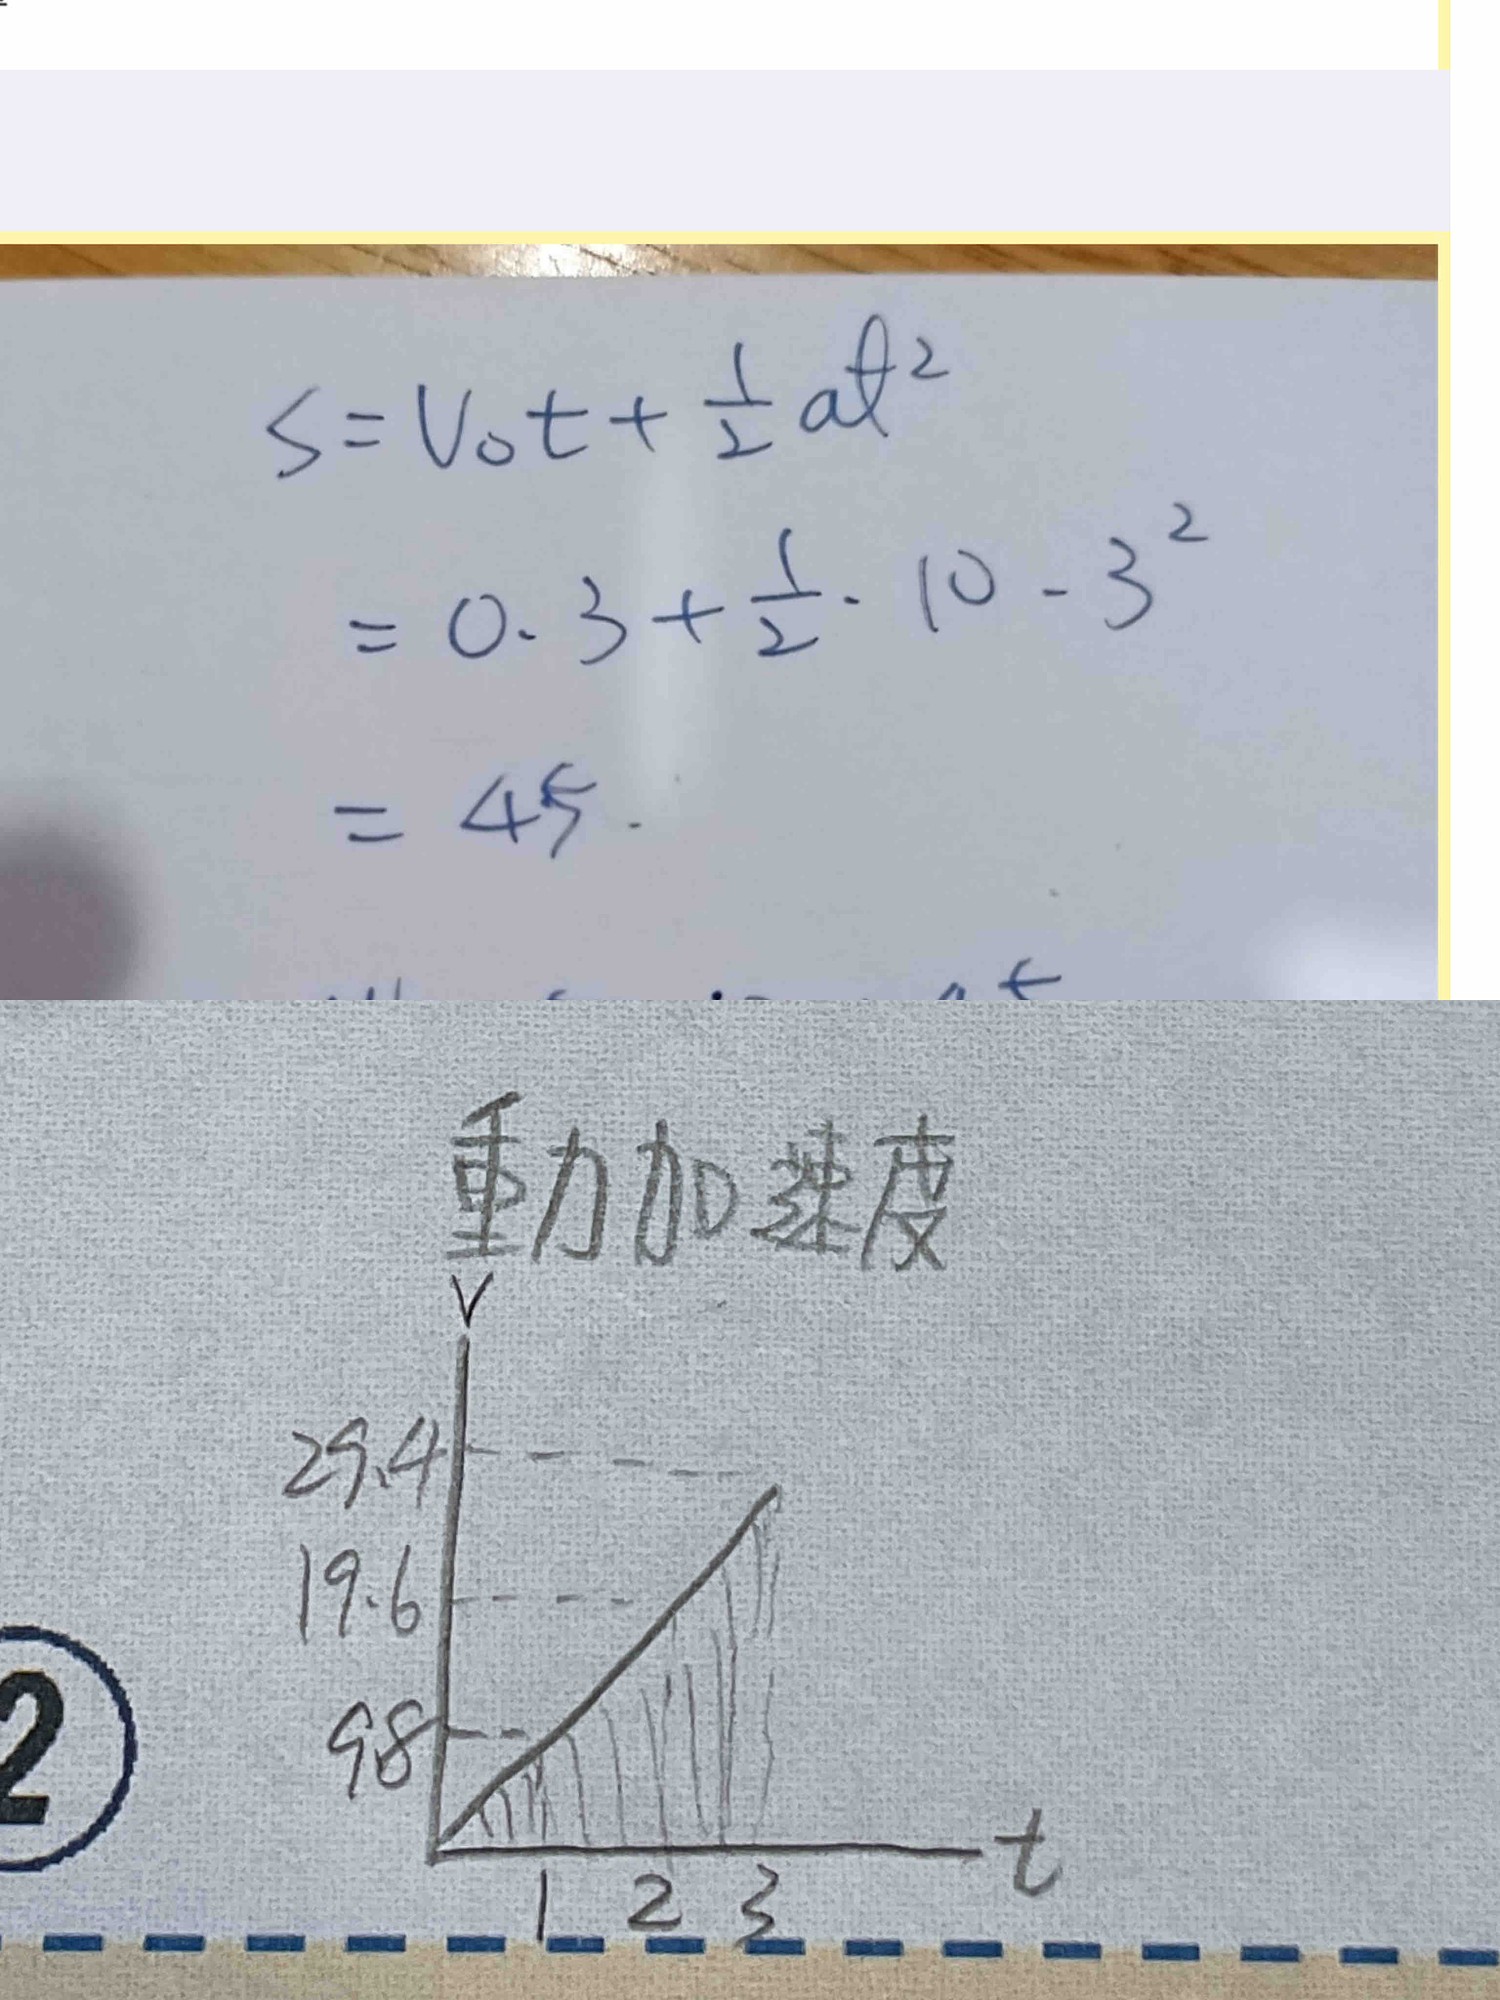 S=V₀t+½at²
=0·3+½·10-3²
=45.
重力加速度
V
29.4
19.6
9.8
2
1 2 3 t